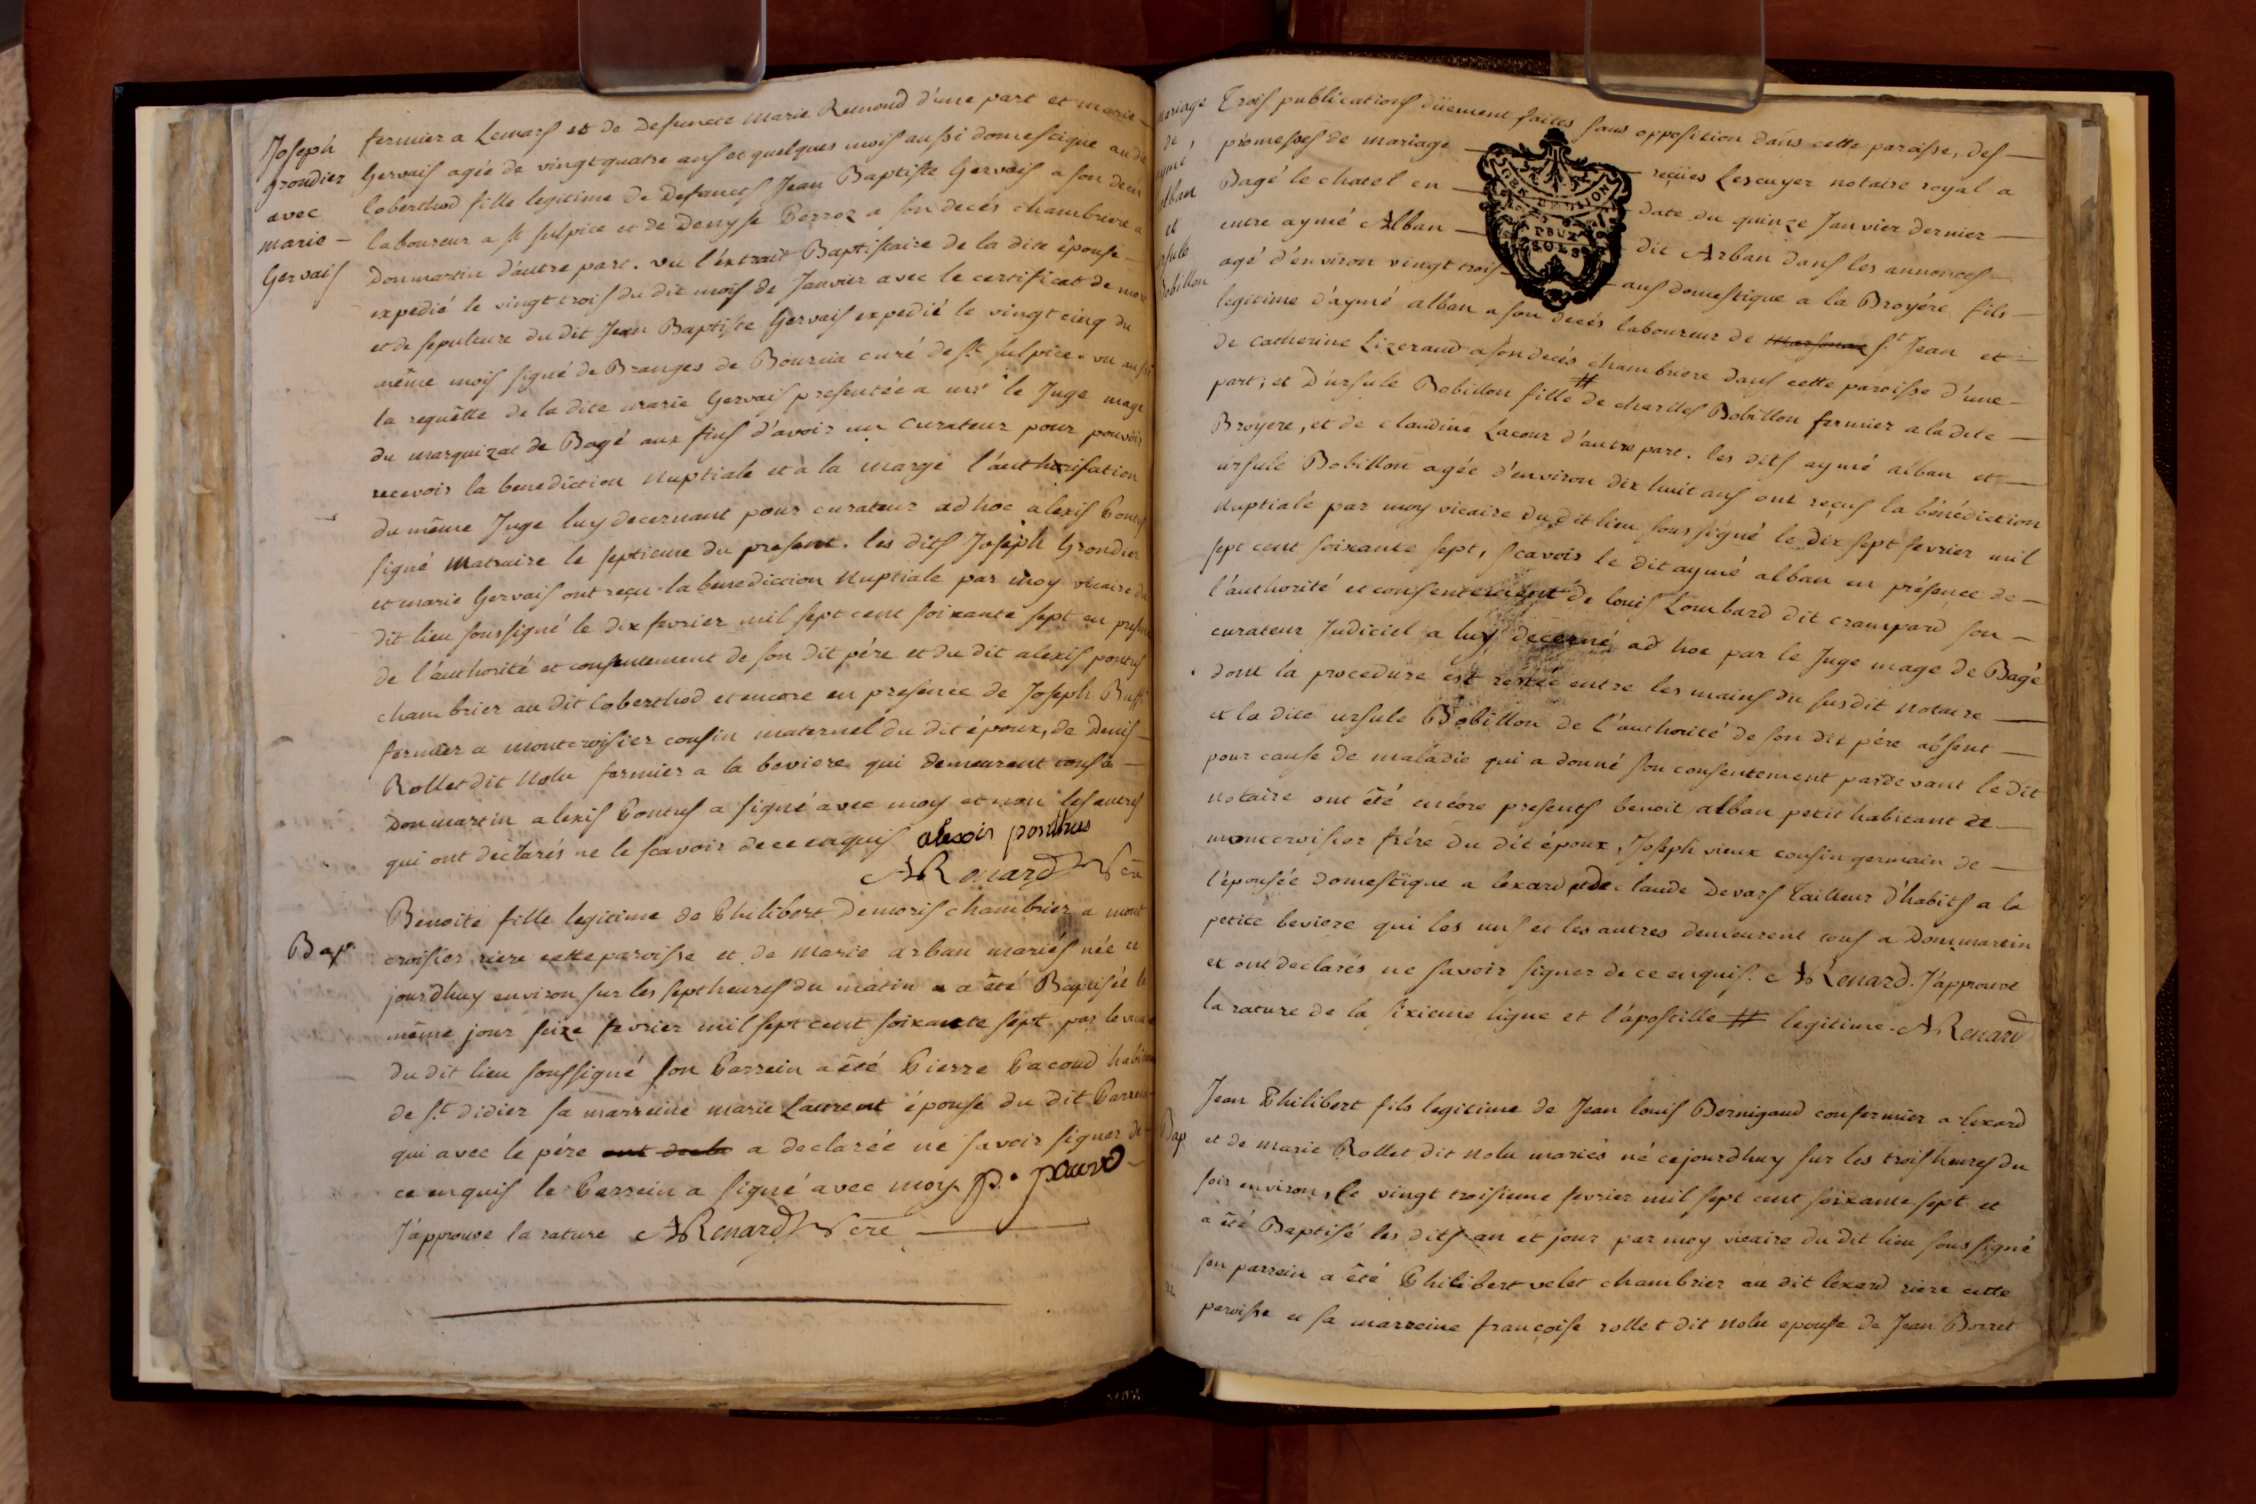 Joseph
Grondier
avec
marie –
Gervais
fermier a Lemars et de defuncte Marie Remond d'une part et marie
Gervais agée de vingt quatre ans et quelques mois aussi domestique au dit
Coberthod fille legitime de defuncts Jean Baptiste Gervais a son deces
laboureur a st sulpice et de Denyse Perroz a son decès chambriere a
Donmartin d'autre part. vu l'extrait Baptistaire de la dite épouse
expedié le vingt trois du dit mois de Janvier avec le certificat de mort
et de sepulture du dit Jean Baptiste Gervais expedié le vingt cinq du
même mois signé de Branges de Bourcia curé de st sulpice. vu aussi
la requête de la dite marie Gervais presentée a mr le Juge mage
du marquizat de Bagé aux fins d'avoir un curateur pour pouvoir
recevoir la benediction nuptiale et à la marge l'authorisation
du même Juge luy decernant pour curateur ad hoc alexis Pontus
signé matraire le septieme du present. les dits Joseph Grondier
et marie Gervais ont reçu la benediction nuptiale par moy vicaire du
dit lieu soussigné le dix fevrier mil sept cent soixante sept en presence
de l'authorité et consentement de son dit pére et du dit alexis pontus
chambrier au dit Coberthod et encore en presence de Joseph
fermier a montcroisier cousin maternel du dit époux, de Denis
Rollet dit Nolu fermier a la beviere qui demeurent tous a
Donmartin alexis Pontus a signé avec moy et non les autres
qui ont déclarés ne le scavoir de ce enquis alexis ponthus
ARenard
Bap.
Benoite fille legitime de Philibert Demoris chambrier a mont
croisier riere cette paroisse et de marie arban mariés née ce
jourdhuy environ sur les sept heures du matin a été Baptisée le
même jour seize fevrier mil sept cent soixante sept par le vicaire
du dit lieu soussigné son Parrein a été Pierre Pacoud habitant
de st didier sa marreine marie Laurent épouse du dit Parrein
qui avec le pére ont decla a declarée ne savoir signer de
ce enquis le Parrein a signé avec moy. p. pacoud
J'approuve la rature ARenard
mariage
de
aymé
alban
et
ursule
Bobillon
Trois publications düement faites sans opposition dans cette paroisse, des
promesses de mariage reçües Lescuyer notaire royal a
Bagé le chatel en date du quinze Janvier dernier
entre aymé Alban dit Arban dans les annonces
agé d'environ vingt trois ans domestique a la Broyére fils
legitime d'aymé alban a son decés laboureur de st Jean et
de catherine Lizeraud a son decés chambriere dans cette paroisse d'une
part, et D'ursule Bobillon fille # de charles Bobillon fermier a la dite
Broyere, et de claudine Lacour d'autre part. les dits aymé alban et
ursule Bobillon agée d'environ dix huit ans ont reçus la bénédiction
nuptiale par moy vicaire du dit lieu soussigné le dix sept fevrier mil
sept cent soixante sept, scavoir le dit aymé alban en présence de
l'authorité et consentement de louis Lombard dit crampard son
curateur Judiciel a luy decerné ad hoc par le Juge mage de Bagé
dont la procedure est restée entre les mains du susdit notaire
et la dite ursule Bobillon de l'authorité de son dit pére absent
pour cause de maladie qui a donné son consentement pardevant le dit
notaire ont été encore presents benoit alban petit habitant de
montcroisier frére du dit époux, Joseph vieux cousin germain de
l'épousée domestique a lexard et de claude Devars tailleur d'habits a la
petite beviere qui les uns et les autres demeurent tous a Dommartin
et ont declarés ne savoir signer de ce enquis. ARenard. J'approuve
la rature de la sixieme ligne et l'apostille # legitime. ARenard
Bap
Jean Philibert fils legitime de Jean louis Bernigaud confermier a lexard
et de marie Rollet dit nolu mariés né cejourdhuy sur les trois heures du
soir environ, le vingt troisieme fevrier mil sept cent soixante sept et
a été Baptisé les dits an et jour par moy vicaire du dit lieu soussigné
son parrein a été Philibert velet chambrier au dit lexard riere cette
paroisse et sa marreine françoise rollet dit nolu epouse de Jean Borret